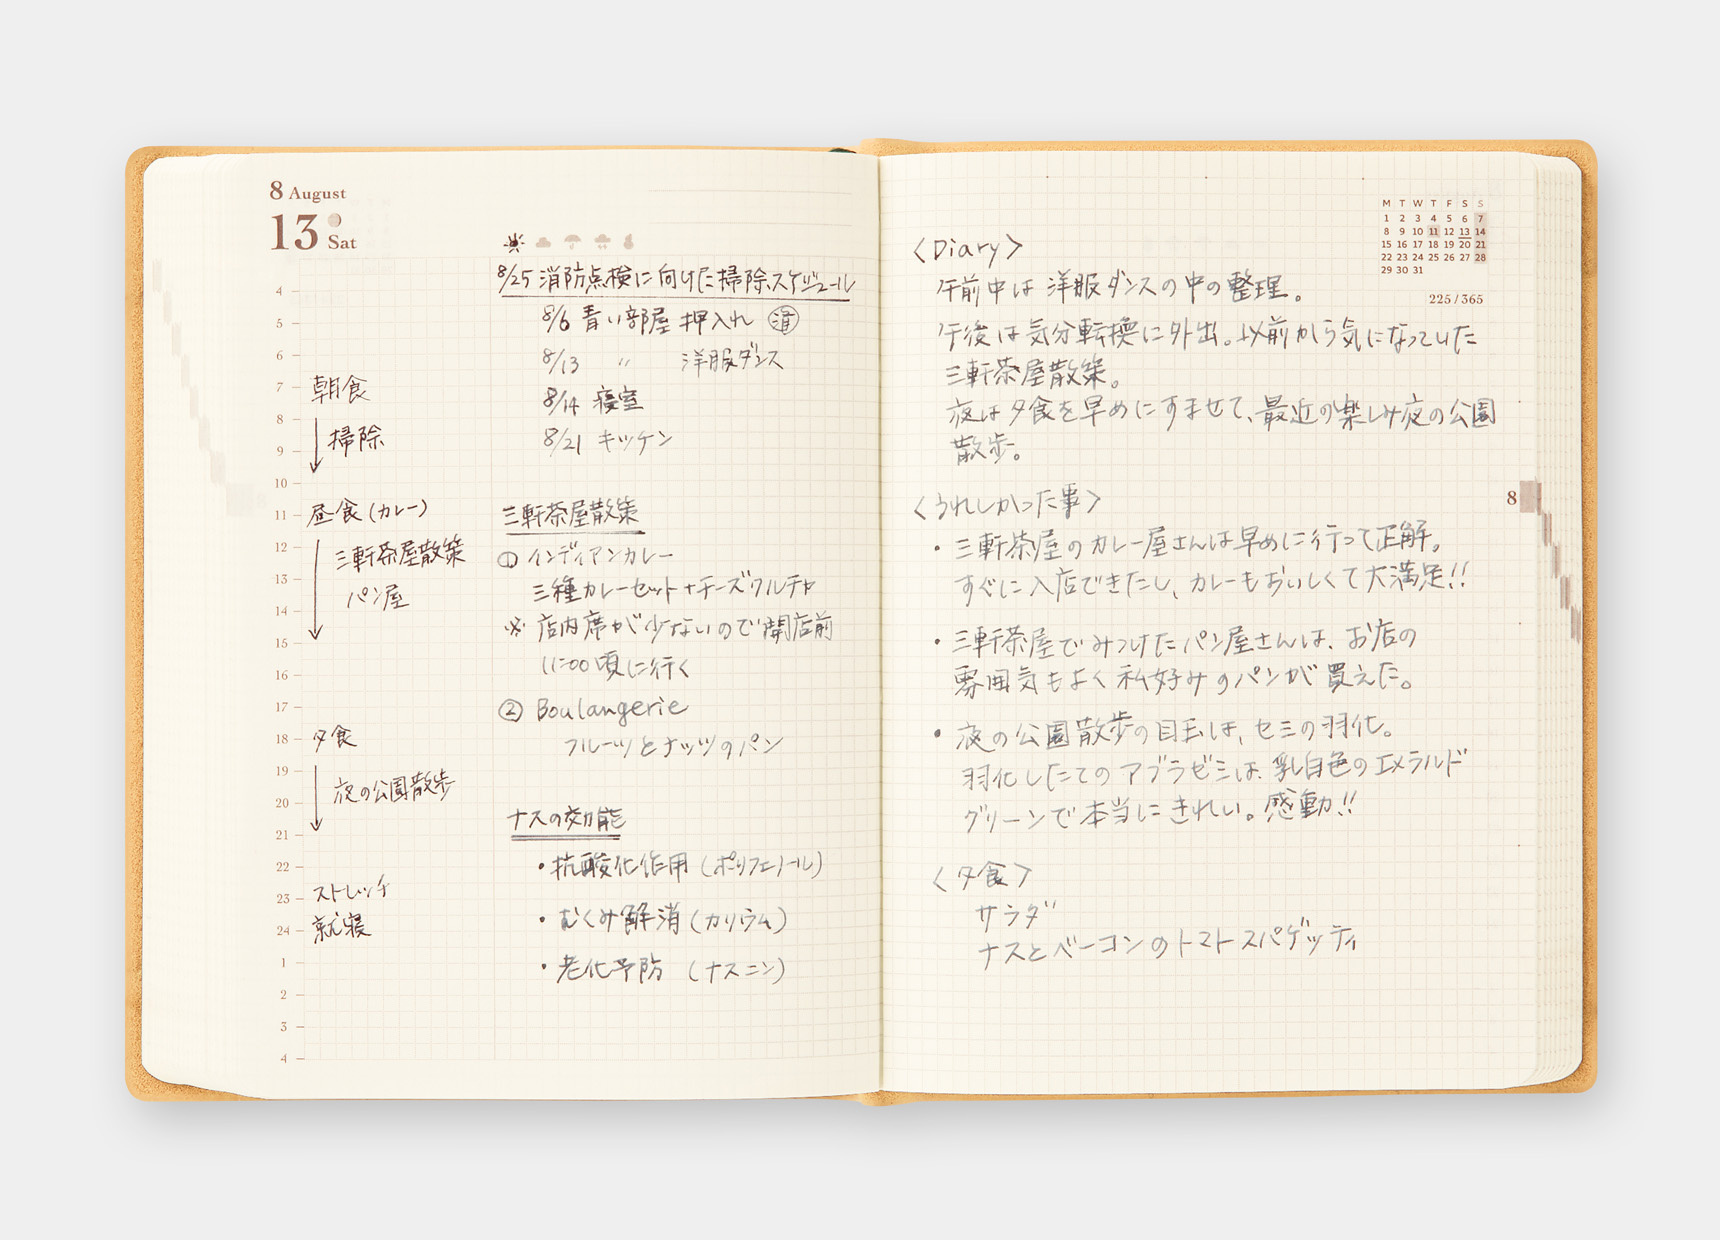 8 August
13 Sat
4
5
6
7
8
9
10
11
12
13
14
15
16
17
18
19
20
21
22
23
24
1
2
3
4
朝食
掃除
昼食(カレー)
三軒茶屋散策
パン屋
夕食
夜の公園散歩
ストレッチ
就寝
8/25 消防点検に向けた掃除スケジュール
8/6 青い部屋 押入れ 済
8/13 〃 洋服ダンス
8/14 寝室
8/21 キッチン
三軒茶屋散策
① インディアンカレー
三種カレーセット+チーズクルチャ
※ 店内席が少ないので開店前
11:00頃に行く
② Boulangerie
フルーツとナッツのパン
ナスの効能
・抗酸化作用(ポリフェノール)
・むくみ解消(カリウム)
・老化予防 (ナスニン)
M T W T F S S
1 2 3 4 5 6 7
8 9 10 11 12 13 14
15 16 17 18 19 20 21
22 23 24 25 26 27 28
29 30 31
225/365
8
〈Diary〉
午前中は洋服ダンスの中の整理。
午後は気分転換に外出。以前から気になっていた
三軒茶屋散策。
夜は夕食を早めにすませて、最近の楽しみ夜の公園
散歩。
〈うれしかった事〉
・三軒茶屋のカレー屋さんは早めに行って正解。
すぐに入店できたし、カレーもおいしくて大満足!!
・三軒茶屋でみつけたパン屋さんは、お店の
雰囲気もよく私好みのパンが買えた。
・夜の公園散歩の目玉は、セミの羽化。
羽化したてのアブラゼミは、乳白色のエメラルド
グリーンで本当にきれい。感動!!
〈夕食〉
サラダ
ナスとベーコンのトマトスパゲッティ